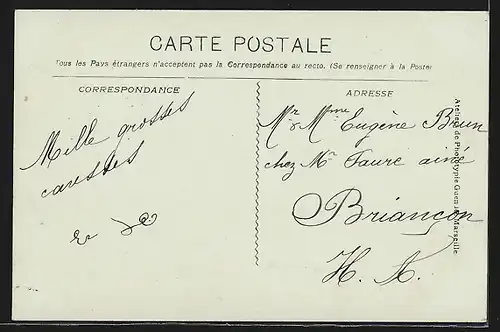 CARTE POSTALE
Tous les Pays étrangers n'acceptent pas la Correspondance au recto. (Se renseigner à la Poste)
CORRESPONDANCE
Mille grosses
caresses
ADRESSE
Mr & Mme Eugène Brun
chez Mr Faure ainé
Briançon
H. A.
Ateliers de Phototypie Marseille